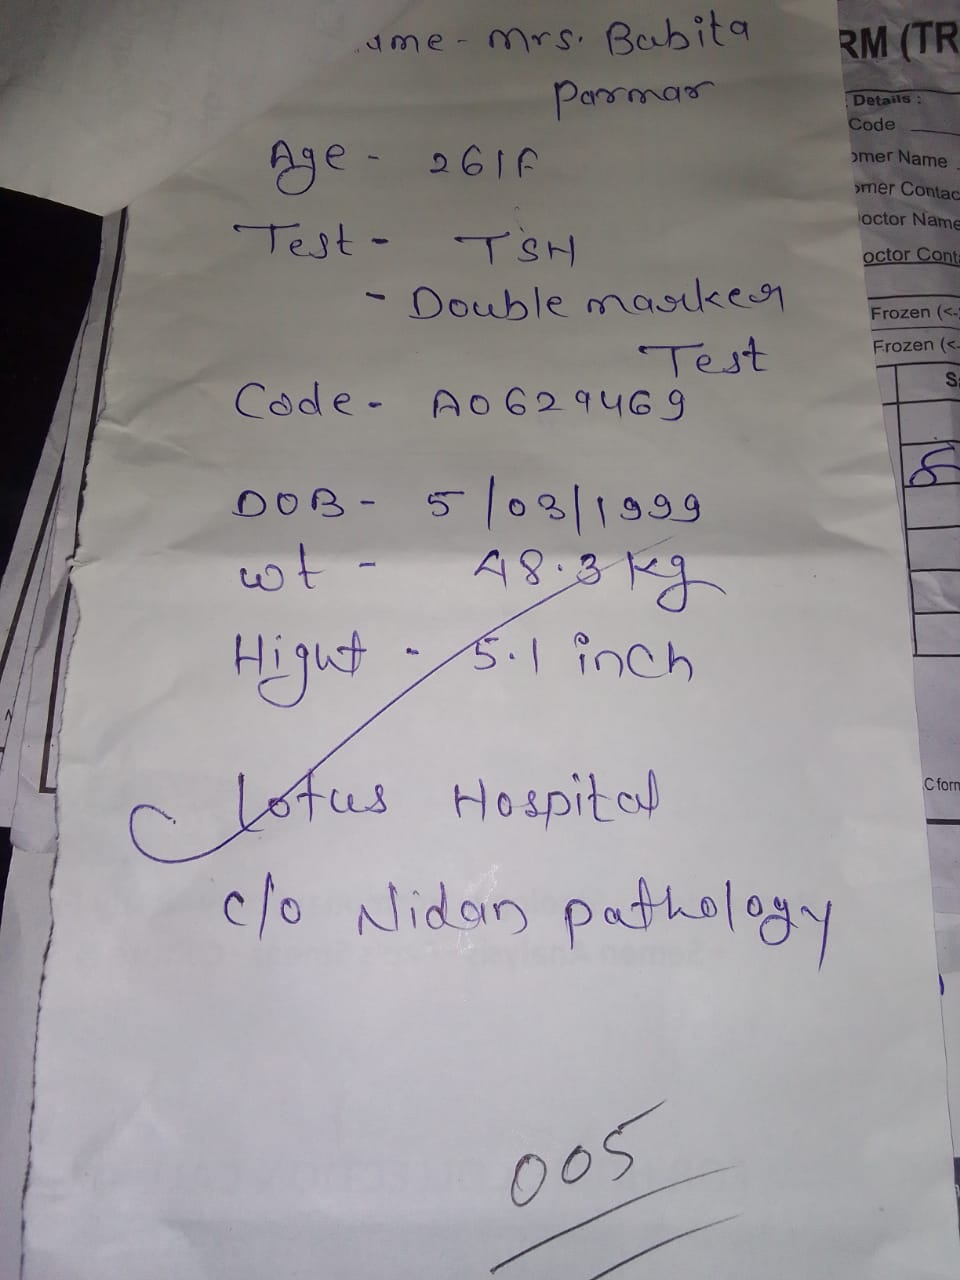 ame - Mrs. Babita
Parmar
Age - 26/F
Test - TSH
- Double marker
Test
Code - A0629469
DOB - 5/03/1999
wt - 48.3 kg
Hight - 5.1 inch
Lotus Hospital
c/o Nidan pathology
005
RM (TR
Details :
Code
omer Name
omer Contac
octor Name
octor Cont
Frozen (<-
Frozen (<-
S
C form